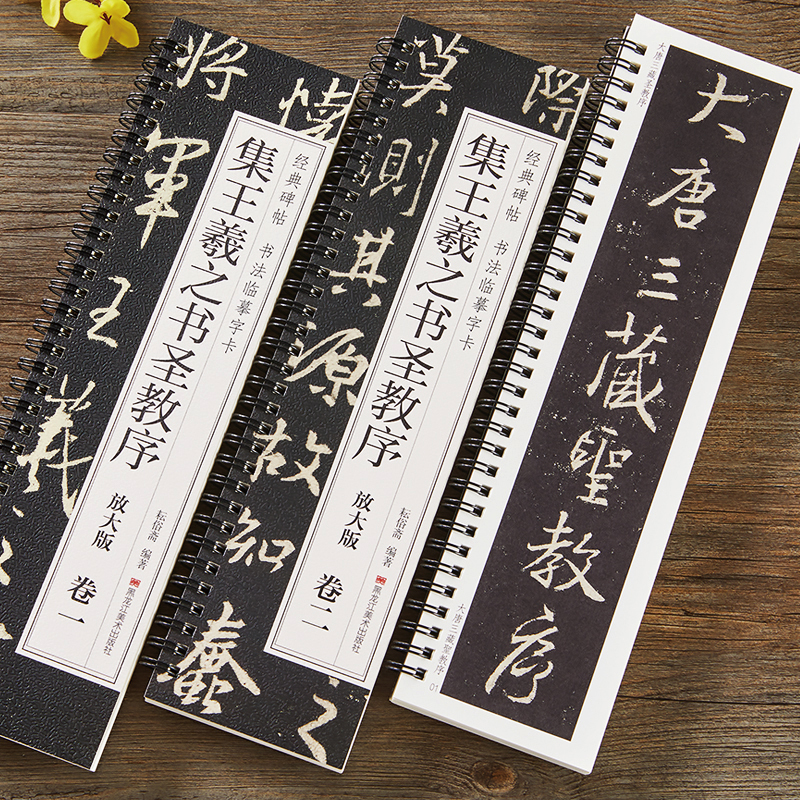 將軍王羲之
懷
经典碑帖 书法临摹字卡
集王羲之书圣教序
放大版 卷一
编著
黑龙江美术出版社
莫測其源故知蠢
際
之
经典碑帖 书法临摹字卡
集王羲之书圣教序
放大版 卷二
编著
黑龙江美术出版社
大唐三藏圣教序
大唐三藏聖教序
大唐三藏聖教序 01